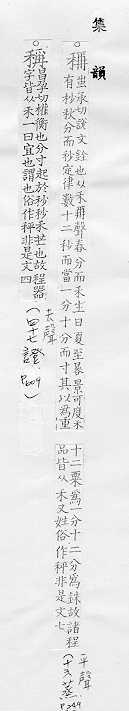 集韻
稱
蚩承切說文銓也从禾爯聲春分而禾生日夏至晷景可度禾
有秒秋分而秒定律數十二秒而當一分十分而寸其以為重
十二粟為一分十二分為銖故諸程
品皆从禾又姓俗作秤非是文七
平聲
(十六蒸)
P249
稱
昌孕切權衡也分寸起於秒秒禾芒也故程器
字皆从禾一曰宜也謂也俗作秤非是文四
去聲
(四十七證)
P609